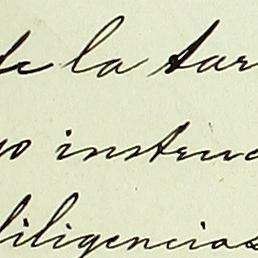 de la tar
go instruc
diligencias